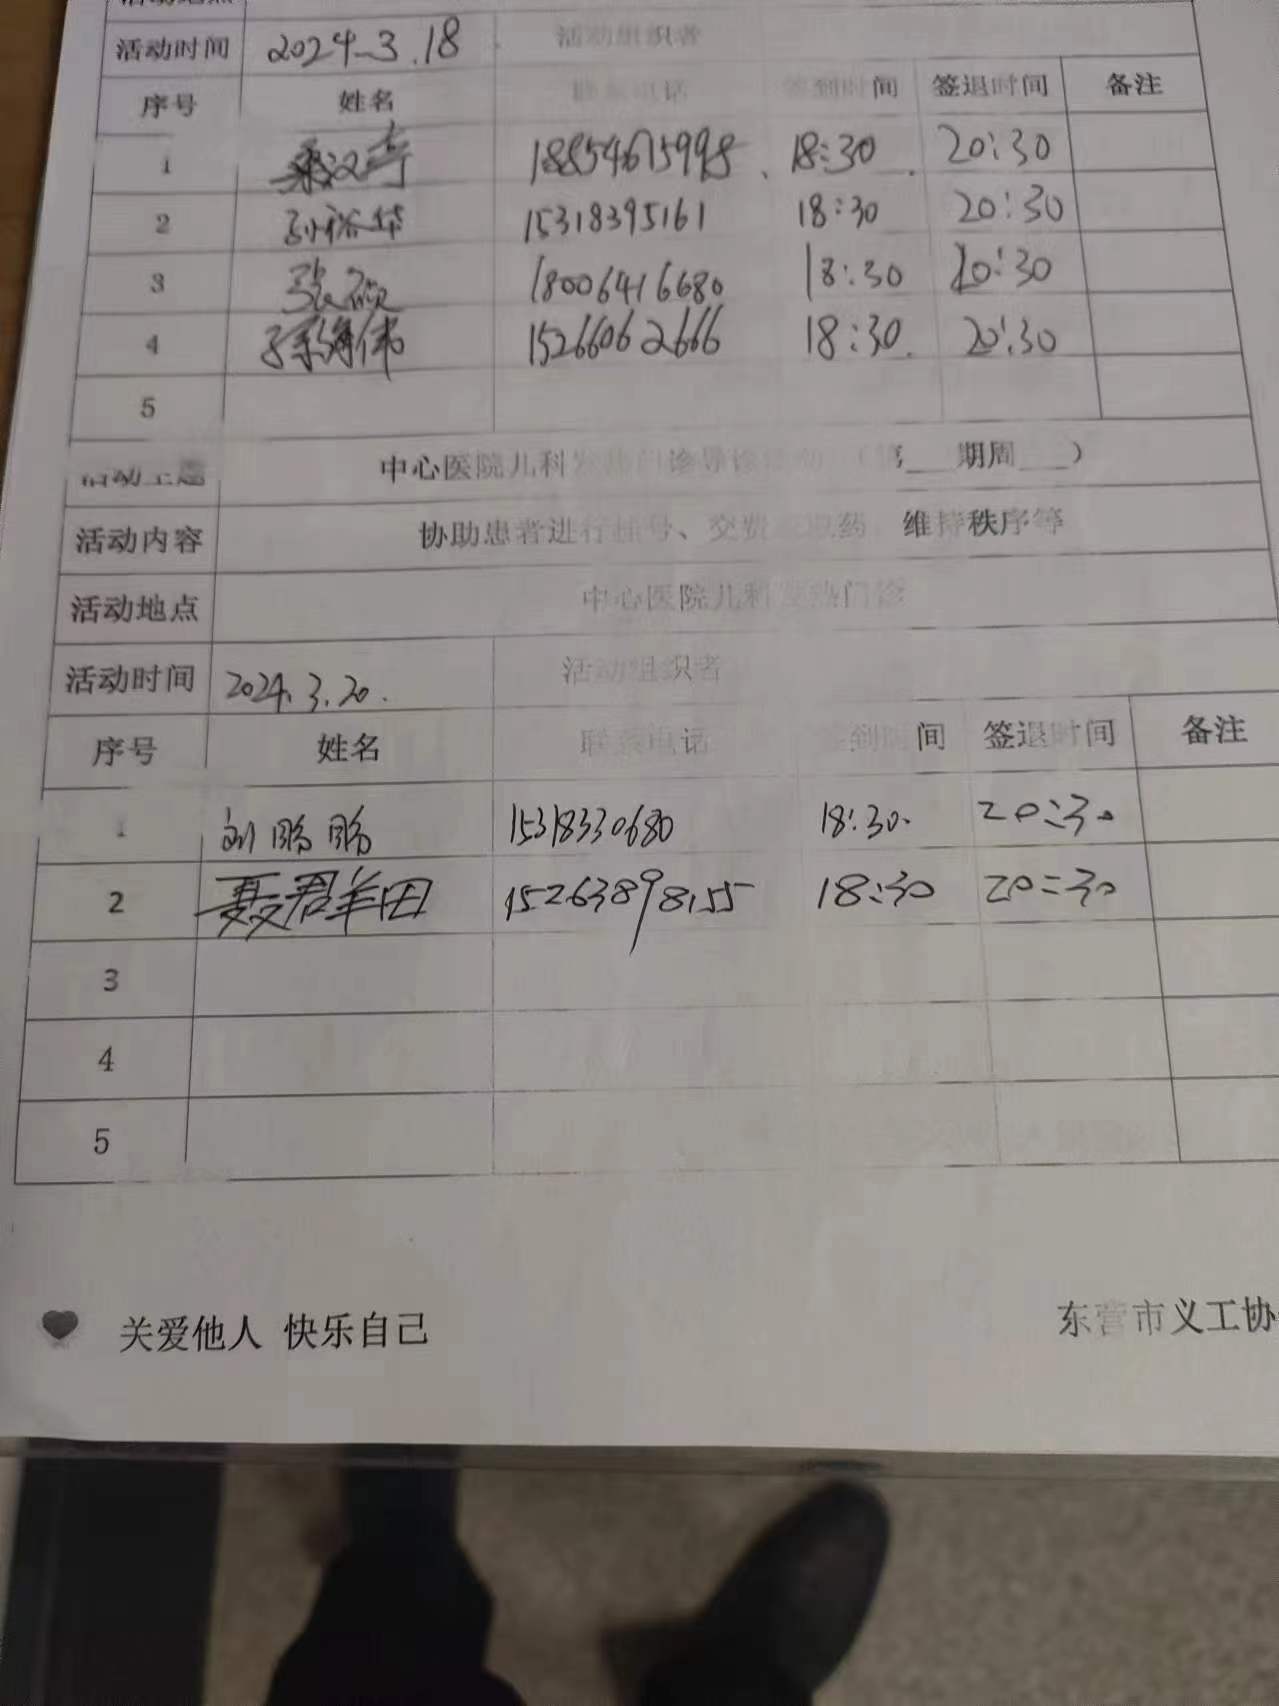 活动地点
活动时间 2024.3.18 活动组织者
序号 姓名 联系电话 签到时间 签退时间 备注
1 18854615998 18:30 20:30
2 孙裕华 15318395161 18:30 20:30
3 张硕 18006416680 18:30 20:30
4 15266062666 18:30 20:30
5
活动主题 中心医院儿科发热门诊导诊活动（第___期周___）
活动内容 协助患者进行挂号、交费、取药、维持秩序等
活动地点 中心医院儿科发热门诊
活动时间 2024.3.20. 活动组织者
序号 姓名 联系电话 签到时间 签退时间 备注
1 刘鹏鹏 15318330680 18:30. 20:30
2 聂君 15263898155 18:30 20:30
3
4
5
关爱他人 快乐自己 东营市义工协